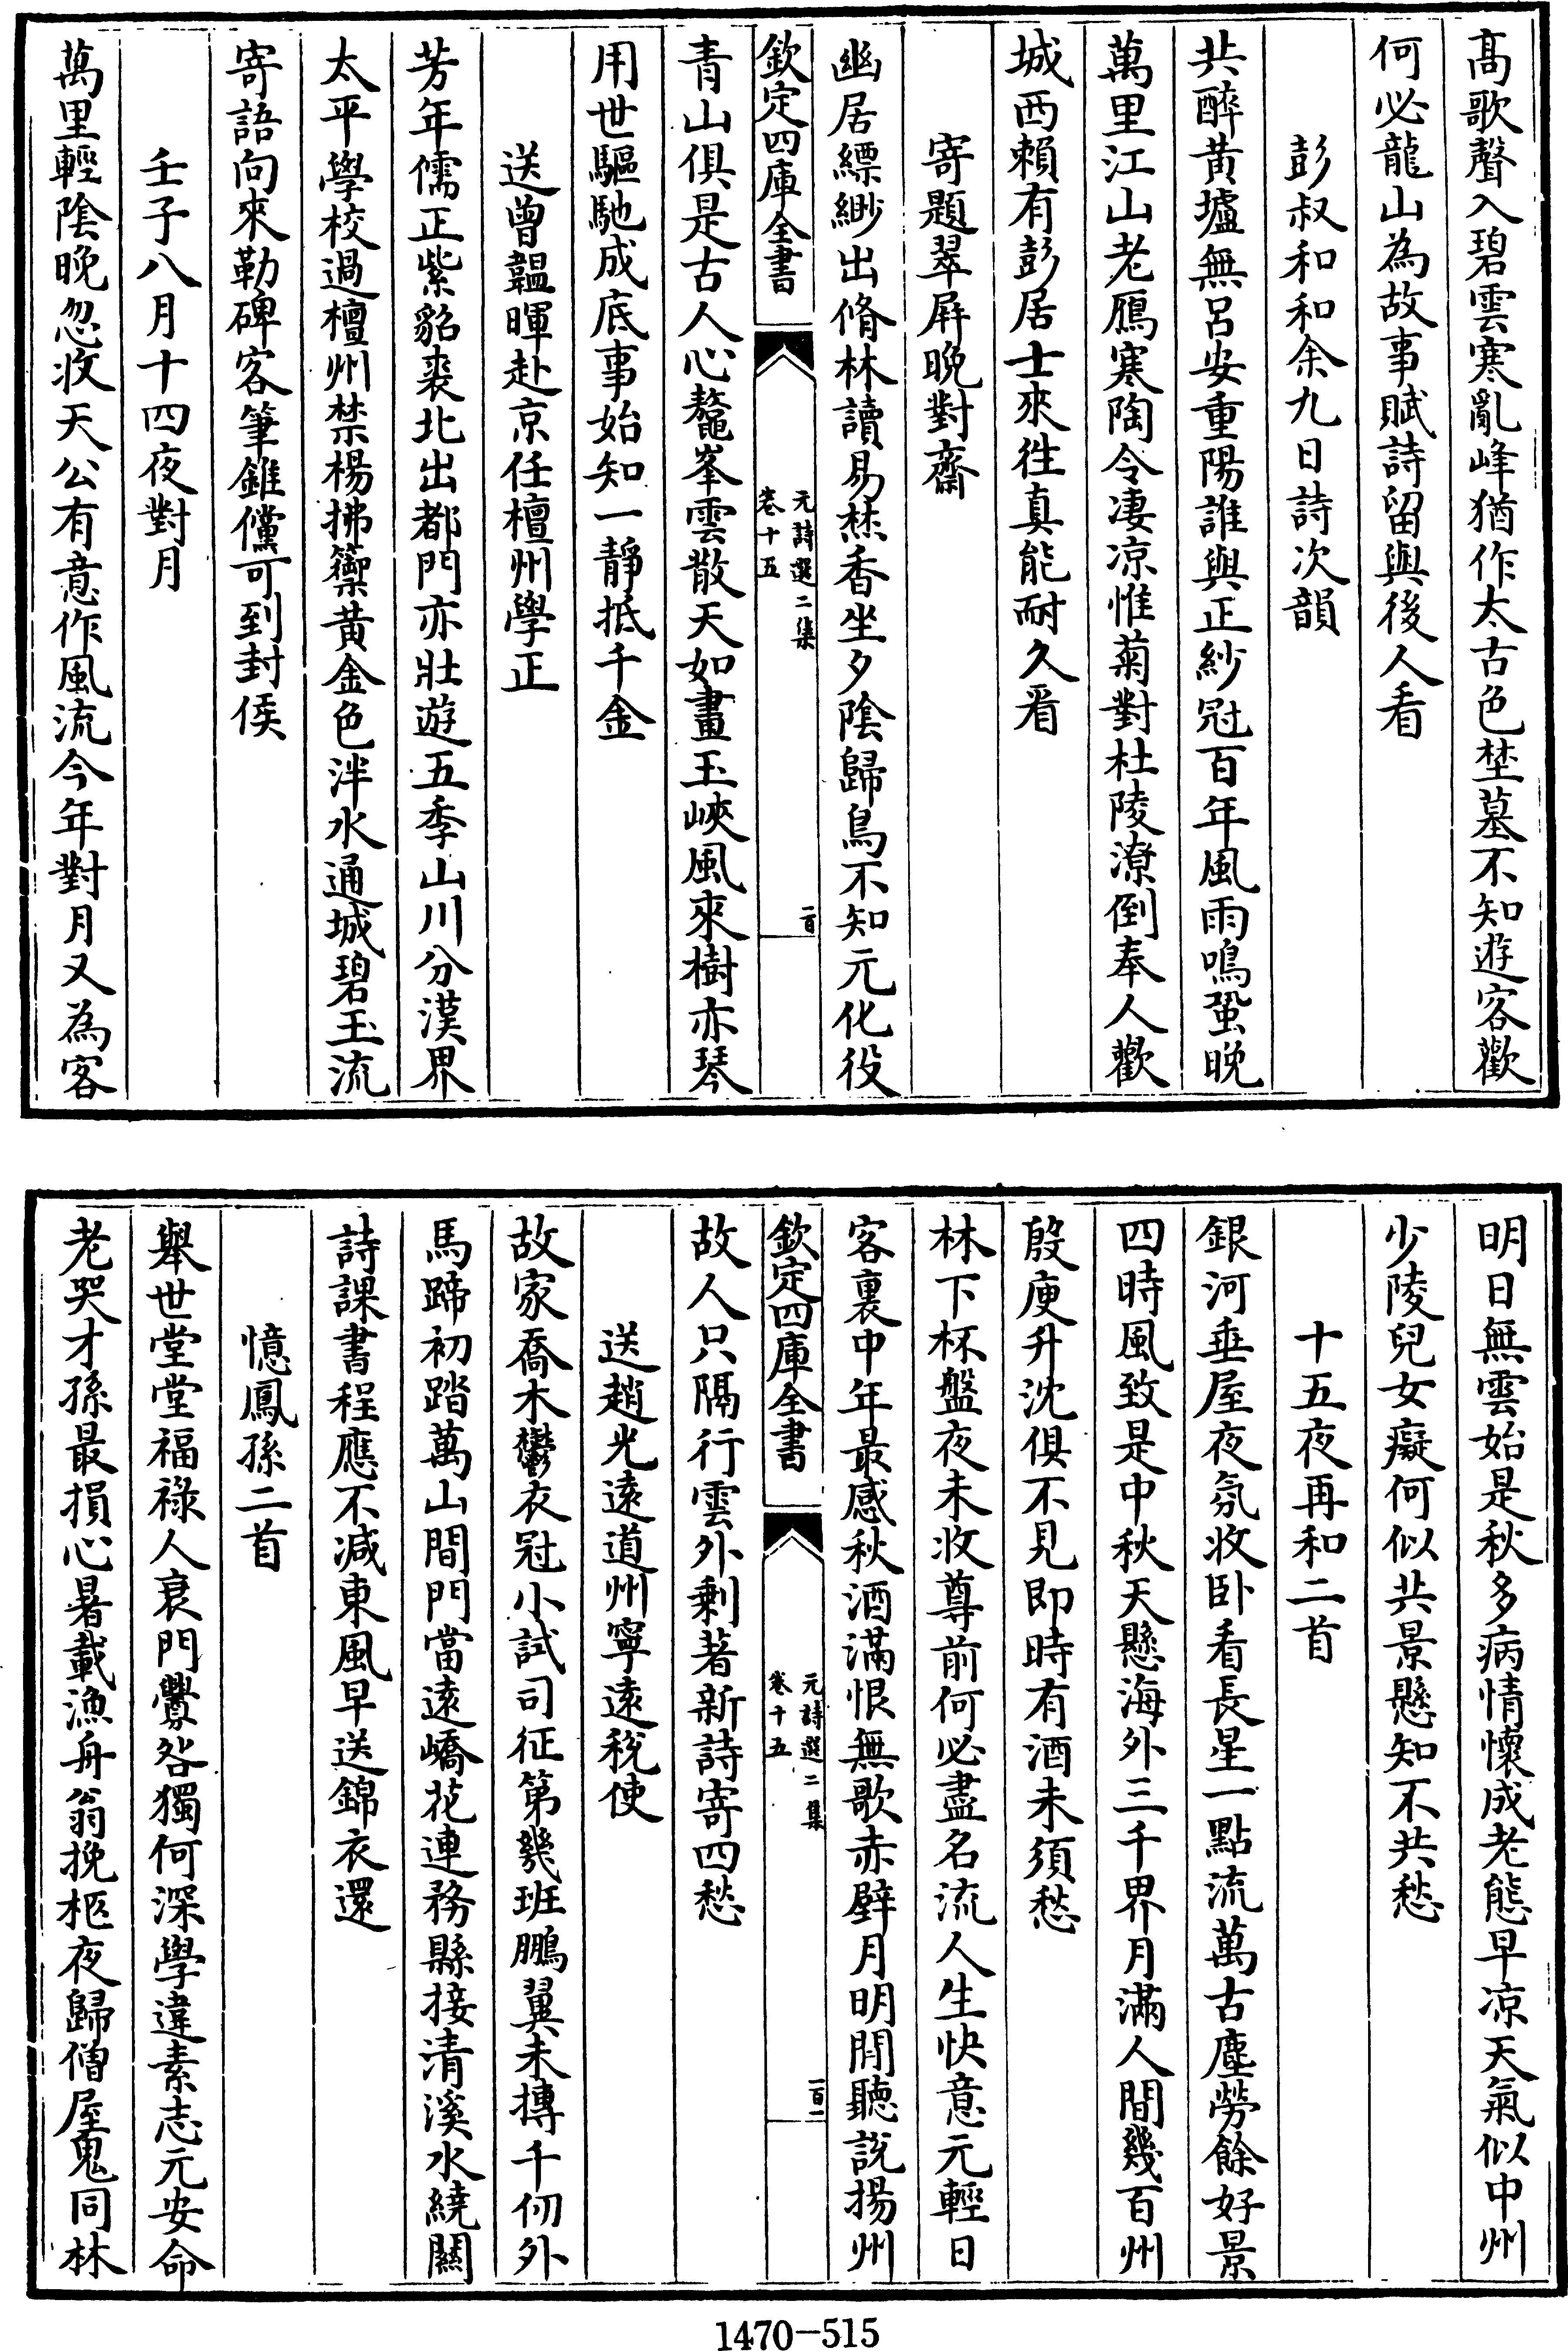 髙歌聲入碧雲寒亂峰猶作太古色埜墓不知遊客歡
何必龍山為故事賦詩留與後人看
彭叔和和余九日詩次韻
共醉黄壚無吕安重陽誰與正紗冠百年風雨鳴蛩晚
萬里江山老鴈寒陶令凄凉惟菊對杜陵潦倒奉人歡
城西賴有彭居士來徃真能耐久看
寄題翠屏晩對齋
幽居縹緲出脩林讀易焚香坐夕陰歸鳥不知元化役
欽定四庫全書
元詩選二集
卷十五
一百
青山俱是古人心鼇峯雲散天如畫玉峽風來樹亦琴
用世驅馳成底事始知一靜抵千金
送曾韞暉赴京任檀州學正
芳年儒正紫貂裘北出都門亦壯遊五季山川分漢界
太平學校過檀州禁楊拂籞黄金色泮水通城碧玉流
寄語向來勒碑客筆錐儻可到封侯
壬子八月十四夜對月
萬里輕陰晚忽收天公有意作風流今年對月又為客
明日無雲始是秋多病情懷成老態早凉天氣似中州
少陵兒女癡何似共景懸知不共愁
十五夜再和二首
銀河垂屋夜氛收卧看長星一點流萬古塵勞餘好景
四時風致是中秋天懸海外三千界月滿人間幾百州
殷庾升沈俱不見即時有酒未須愁
林下杯盤夜未收尊前何必盡名流人生快意元輕日
客裏中年最感秋酒滿恨無歌赤壁月明閒聽說揚州
欽定四庫全書
元詩選二集
卷十五
一百一
故人只隔行雲外剩著新詩寄四愁
送趙光遠道州寧遠稅使
故家喬木鬱衣冠小試司征第幾班鵬翼未摶千仞外
馬蹄初踏萬山間門當遠嶠花連務縣接清溪水繞關
詩課書程應不减東風早送錦衣還
憶鳳孫二首
舉世堂堂福祿人衰門釁咎獨何深學違素志元安命
老哭才孫最損心暑載漁舟翁挽柩夜歸僧屋鬼同林
1470—515